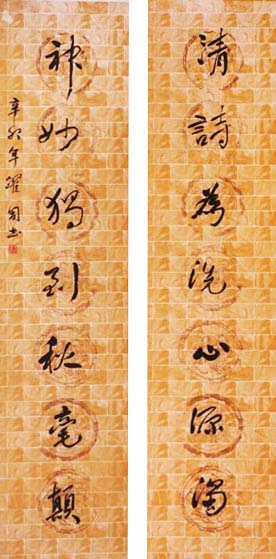 清詩為洗心源濁
神妙獨到秋毫顛
辛卯年躍閣書